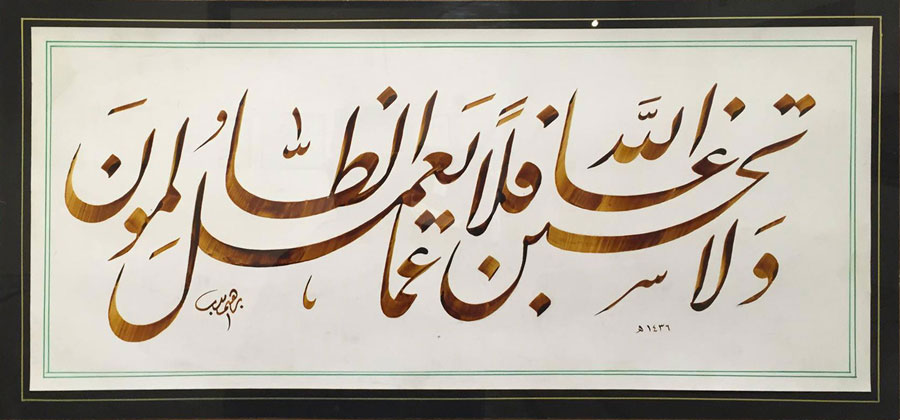 وَلَا تحسبن اللَّه غافلًا عمّا يَعمل الظَّالِمونَ
١٤٣٦ هـ